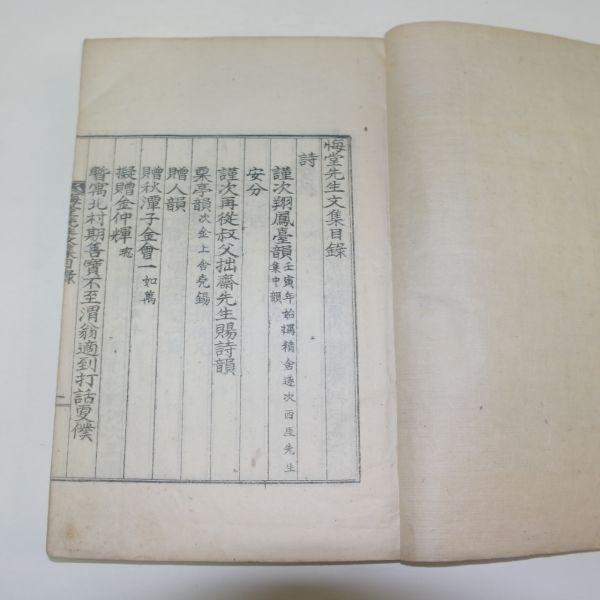 悔堂先生文集目錄
詩
謹次翔鳳臺韻 壬寅年始搆精舍遂次西厓先生集中韻
安分
謹次再從叔父拙齋先生賜詩韻
栗亭韻 次金上舍堯錫
贈人韻
贈秋潭子金會一 如萬
擬贈金仲輝
暫寓北村期喜寶不至渭翁適到打話更僕
悔堂先生文集目錄
一